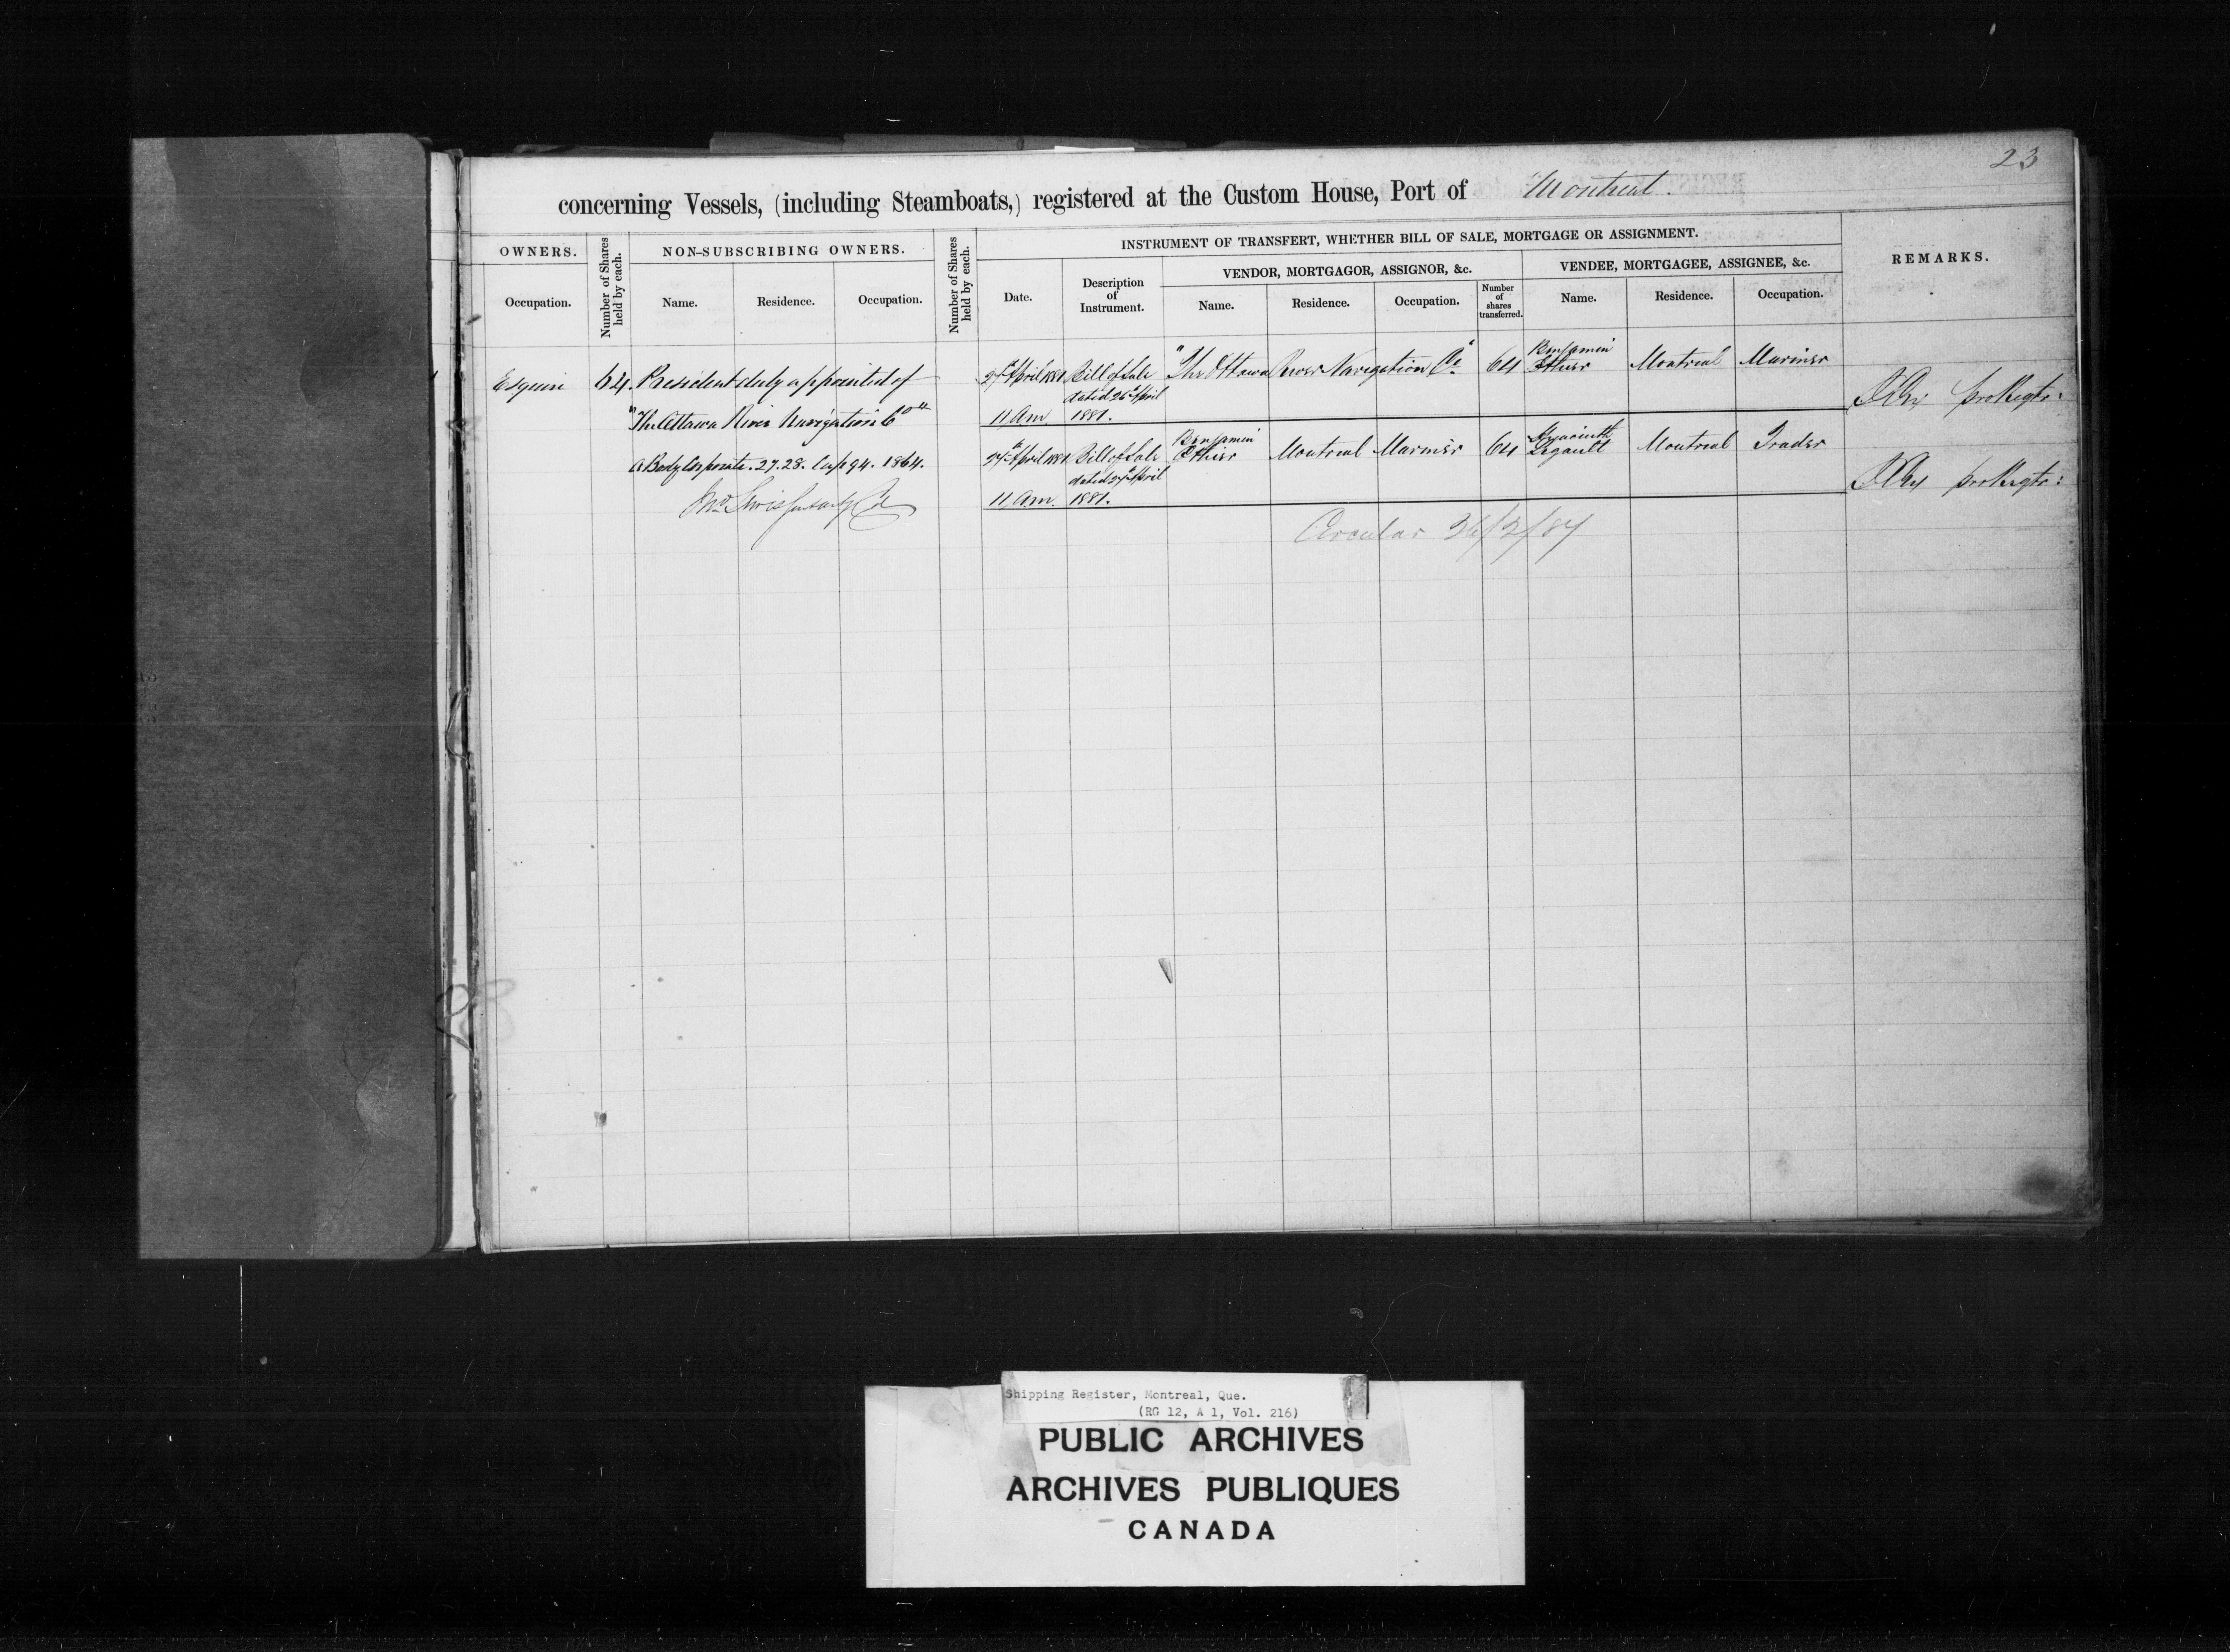 23
concerning Vessels, (including Steamboats,) registered at the Custom House, Port of Montreal.
OWNERS.
Number of Shares held by each.
NON-SUBSCRIBING OWNERS.
Number of Shares held by each.
INSTRUMENT OF TRANSFERT, WHETHER BILL OF SALE, MORTGAGE OR ASSIGNMENT.
REMARKS.
VENDOR, MORTGAGOR, ASSIGNOR, &c.
VENDEE, MORTGAGEE, ASSIGNEE, &c.
Occupation.
Name.
Residence.
Occupation.
Date.
Description of Instrument.
Name.
Residence.
Occupation.
Number of shares transferred.
Name.
Residence.
Occupation.
Esquire 64 President duly appointed of
"The Ottawa River Navigation Co"
a Body Corporate. 27.28. Cap 94. 1864.
27th April 1881 Bill of Sale "The Ottawa River Navigation Co" 64 Benjamin Ethier Montreal Mariner
dated 26th April
11 Am 1881.
pro Regtr:
27th April 1881 Bill of Sale Benjamin Ethier Montreal Mariner 64 Hyacinth Legault Montreal Trader
dated 27th April
11 a.m. 1881.
pro Regtr:
Circular 26/2/87
Shipping Register, Montreal, Que.
(RG 12, A 1, Vol. 216)
PUBLIC ARCHIVES
ARCHIVES PUBLIQUES
CANADA